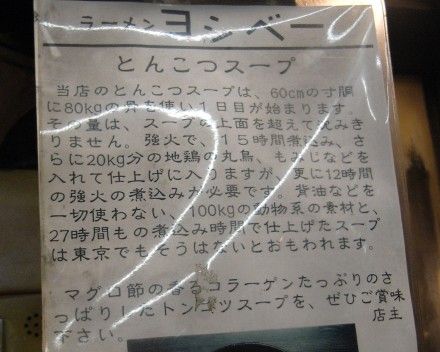 ラーメン ヨシベー
とんこつスープ
当店のとんこつスープは、60cmの寸胴
に80kgの骨を使い1日目が始まります。
その量は、スープの上面を超えて沈みき
りません。強火で、15時間煮込み、さ
らに20kg分の地鶏の丸鳥、もみじなどを
入れて仕上げに入りますが、更に12時間
の強火の煮込みが必要です。背油などを
一切使わない、100kgの動物系の素材と、
27時間もの煮込み時間で仕上げたスープ
は東京でもそうはないとおもわれます。
マグロ節の香るコラーゲンたっぷりのさ
っぱりしたトンコツスープを、ぜひご賞味
下さい。
店主